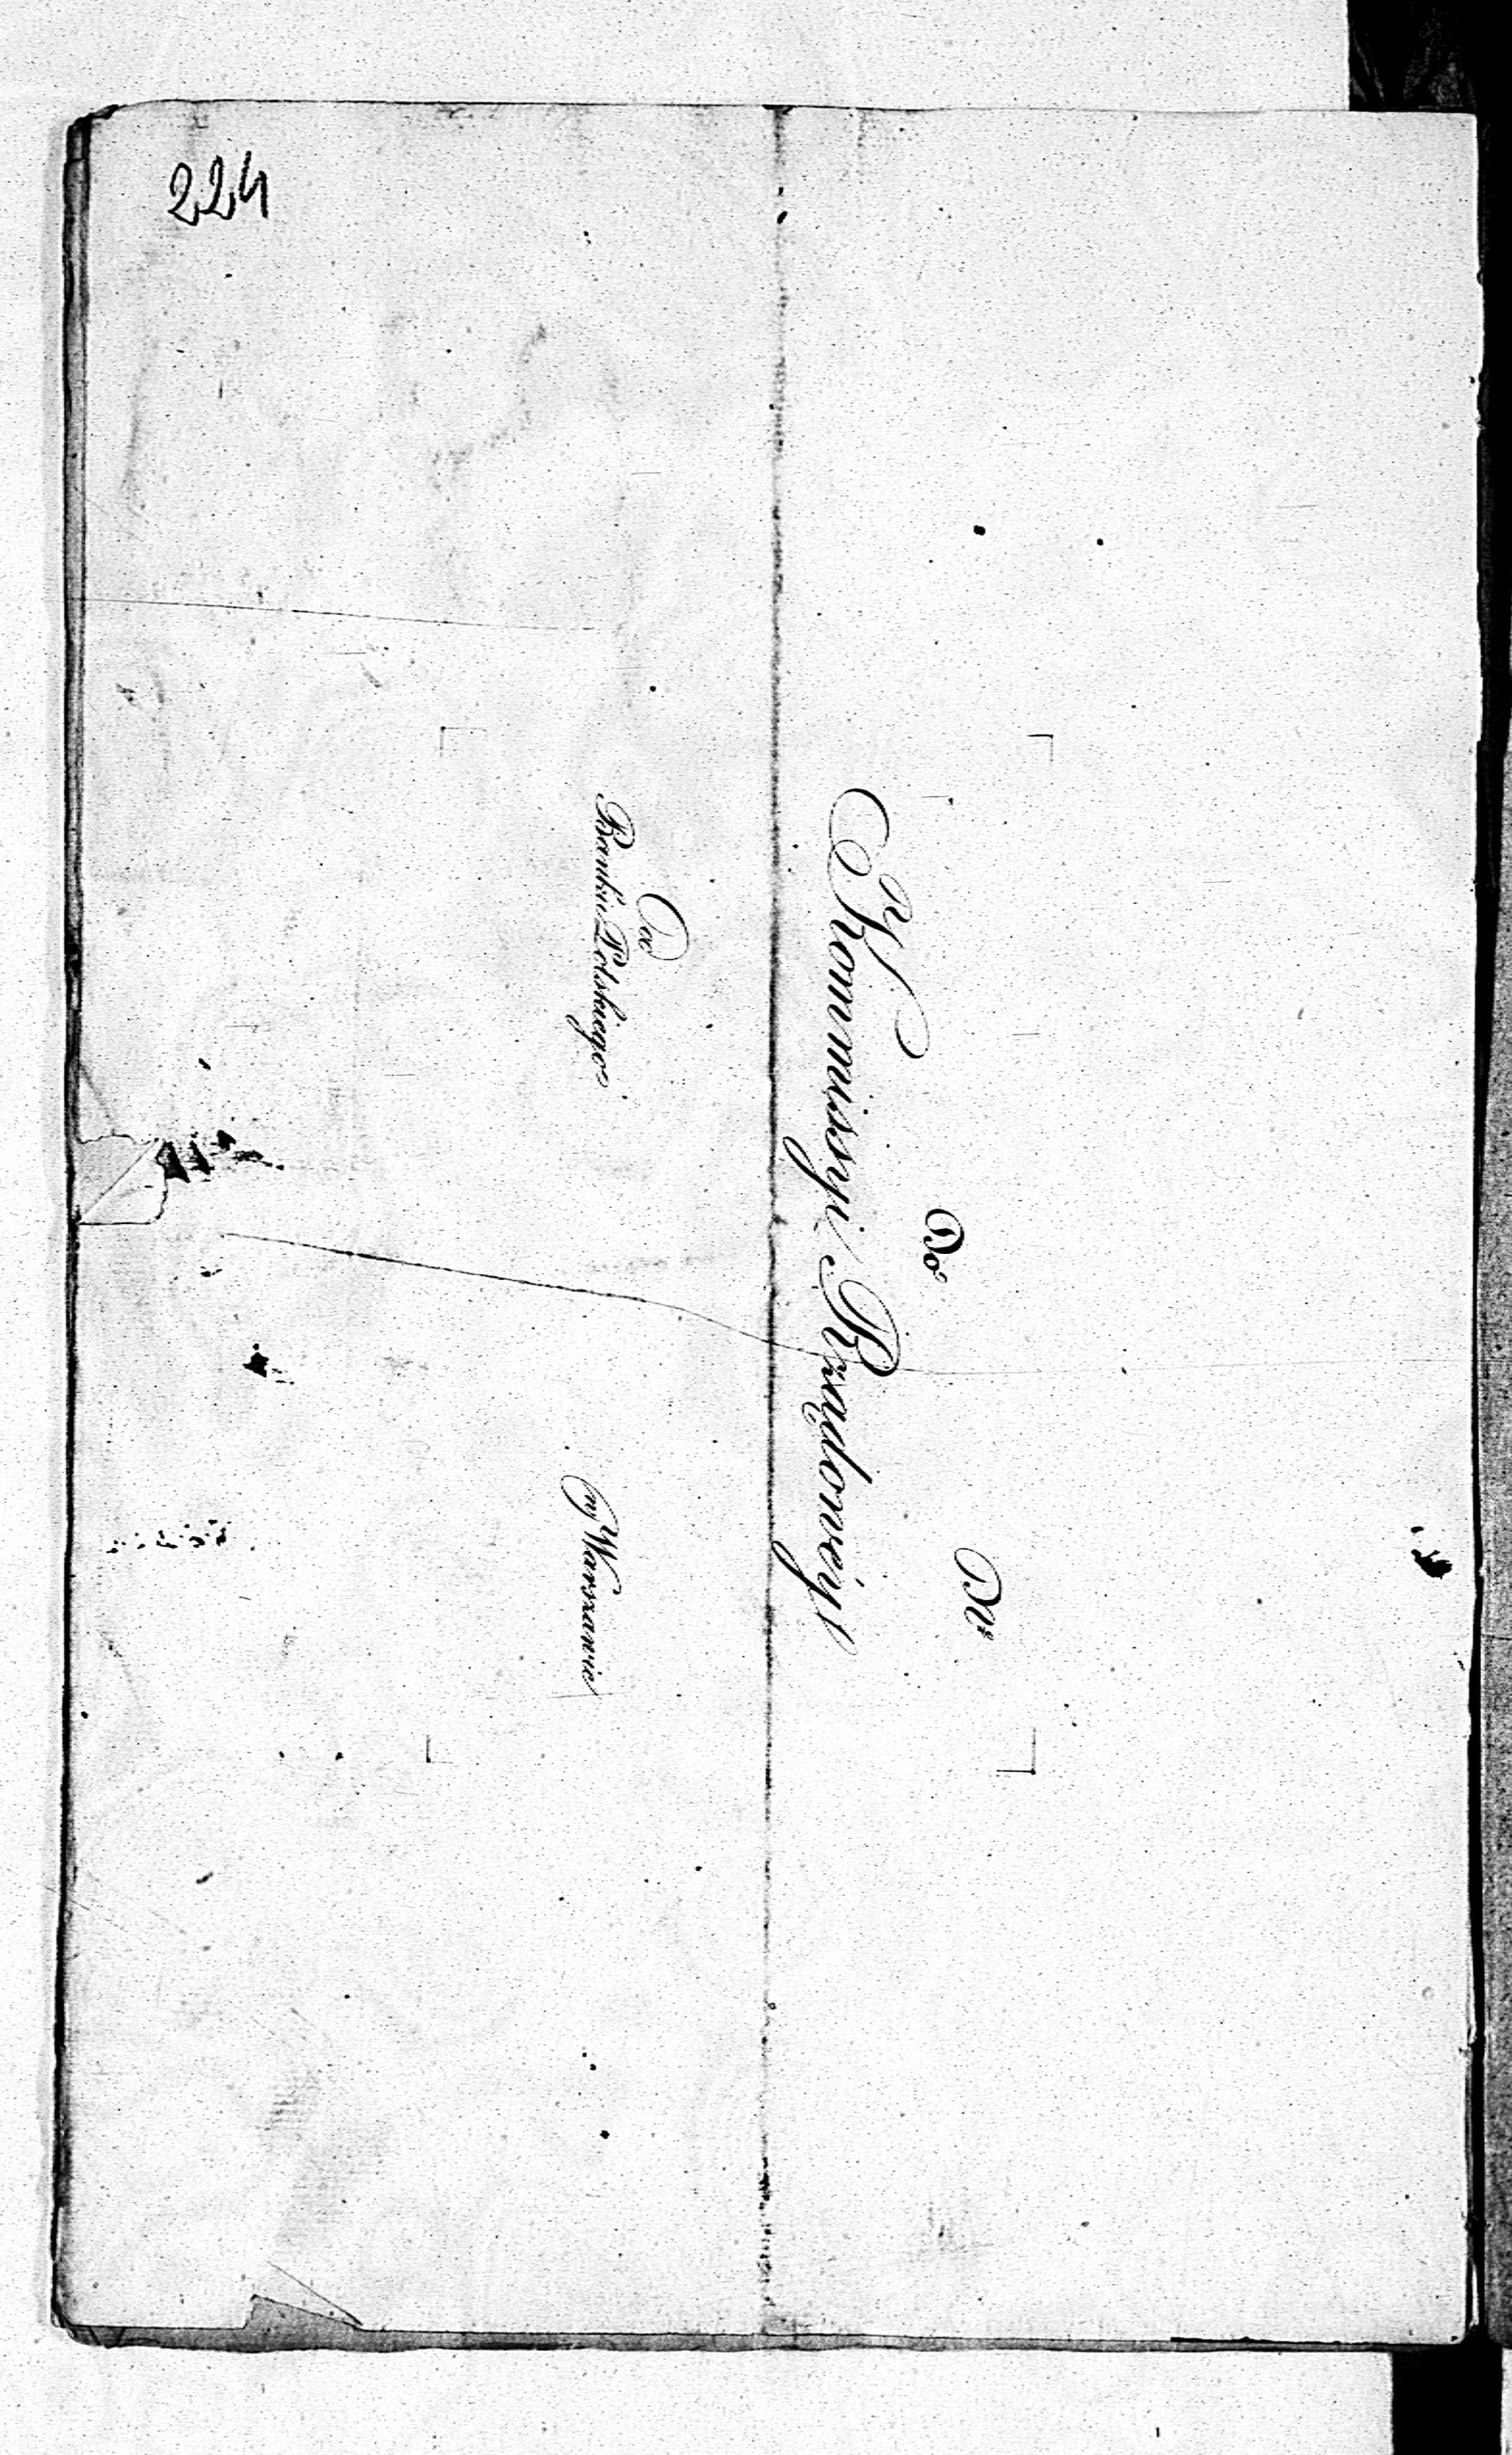 224
Nr
Do
Kommissyi Rządowéy
Od
Banku Polskiego
w Warszawie